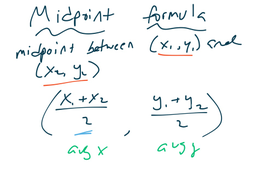 Midpoint formula
midpoint between (x₁, y₁) and
(x₂, y₂)
(x₁ + x₂ / 2 , y₁ + y₂ / 2)
avg x avg y